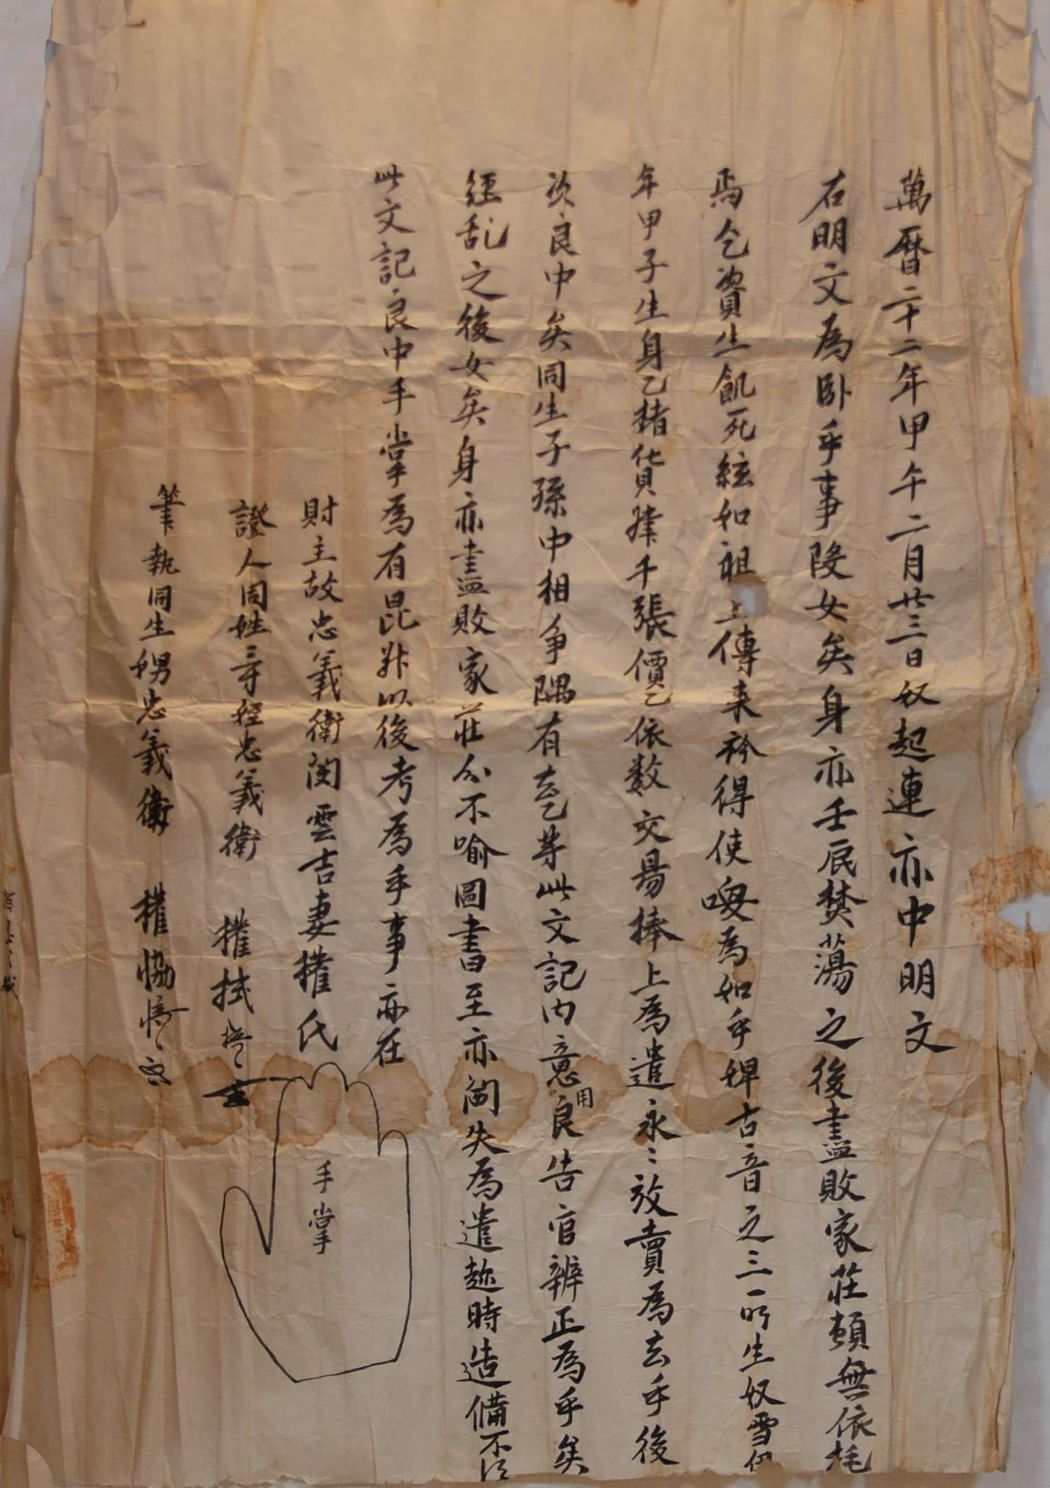 萬曆二十二年甲午二月廿三日奴起連亦中明文
右明文為臥乎事段女矣身亦壬辰焚蕩之後盡敗家莊頓無依
焉乞資生飢死絃如祖上傳来衿得使喚為如乎婢古音之三一所生奴雪
年甲子生身乙楮貨肆千張價乙依数交易捧上為遣永〻放賣為去乎後
次良中矣同生子孫中相争隅有去乙等此文記内意用良告官辨正為乎矣
經乱之後女矣身亦盡敗家莊叱不喻圖書至亦閪失為遣趂時造備不
此文記良中手掌為有昆以後考為乎事亦在
財主故忠義衛閔雲吉妻權氏
手掌
證人同姓三寸姪忠義衛 權拭
筆執同生娚忠義衛 權恊